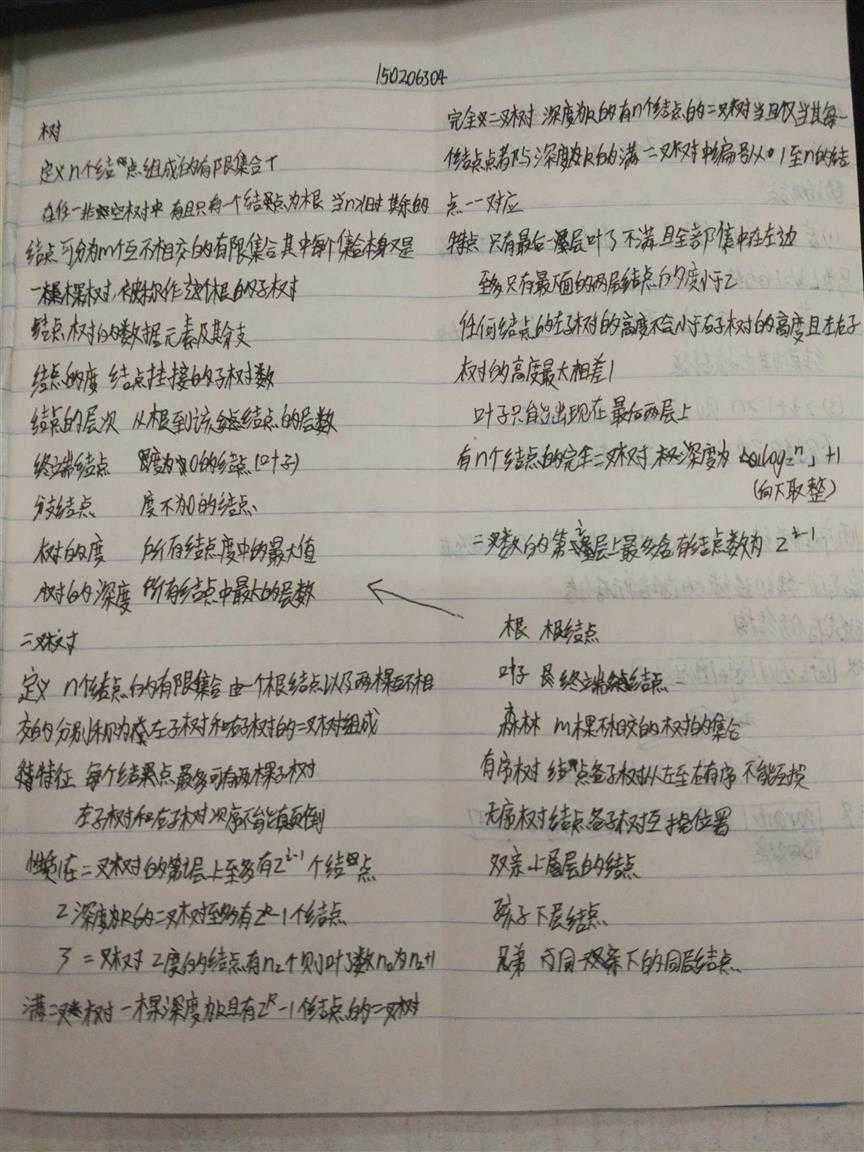 150206304
树
定义 n个结点组成的有限集合T
在任一非空树中 有且只有一个结点为根 当n>1时 其余的
结点可分为m个互不相交的有限集合 其中每个集合本身又是
一棵树 被称作这个根的子树
结点 树的数据元素及其分支
结点的度 结点挂接的子树数
结点的层次 从根到该结点的层数
终端结点 度为0的结点(叶子)
分支结点 度不为0的结点
树的度 所有结点度中的最大值
树的深度 所有结点中最大的层数
二叉树
定义 n个结点的有限集合 由一个根结点以及两棵互不相
交的分别称为左子树和右子树的二叉树组成
特征 每个结点最多可有两棵子树
左子树和右子树次序不能颠倒
性质1在二叉树的第i层上至多有2^{i-1}个结点
2 深度为k的二叉树至多有2^k-1个结点
3 二叉树 2度的结点有n₂个则叶子数n₀为n₂+1
满二叉树 一棵深度为k且有2^k-1个结点的二叉树
完全二叉树 深度为k的有n个结点的二叉树当且仅当其每一
个结点都与深度为k的满二叉树中编号从1至n的结
点一一对应
特点 只有最后一层叶子不满且全部集中在左边
至多只有最下面的两层结点的度小于2
任何结点的左子树的高度不会小于右子树的高度且左右子
树的高度最大相差1
叶子只能出现在最后两层上
有n个结点的完全二叉树 深度为 ⌊log₂n⌋+1
(向下取整)
二叉数的第i层上最多含有结点数为 2^{i-1}
根 根结点
叶子 终端结点
森林 m棵不相交的树的集合
有序树 结点各子树从左至右有序 不能互换
无序树 结点各子树可互换位置
双亲 上层的结点
孩子 下层结点
兄弟 同一双亲下的同层结点